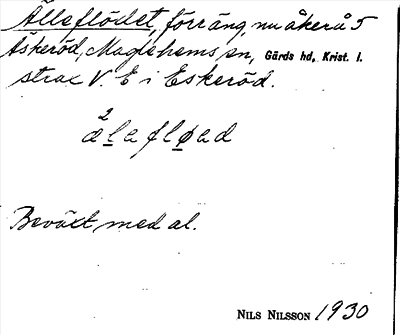 Älleflödet, förräng, nu åker å 5
Äskeröd, Maglehems sn, Gärds hd, Krist. l.
strax V. E i Eskeröd.
2
ælafløad
Beväxt med al.
NILS NILSSON 1930